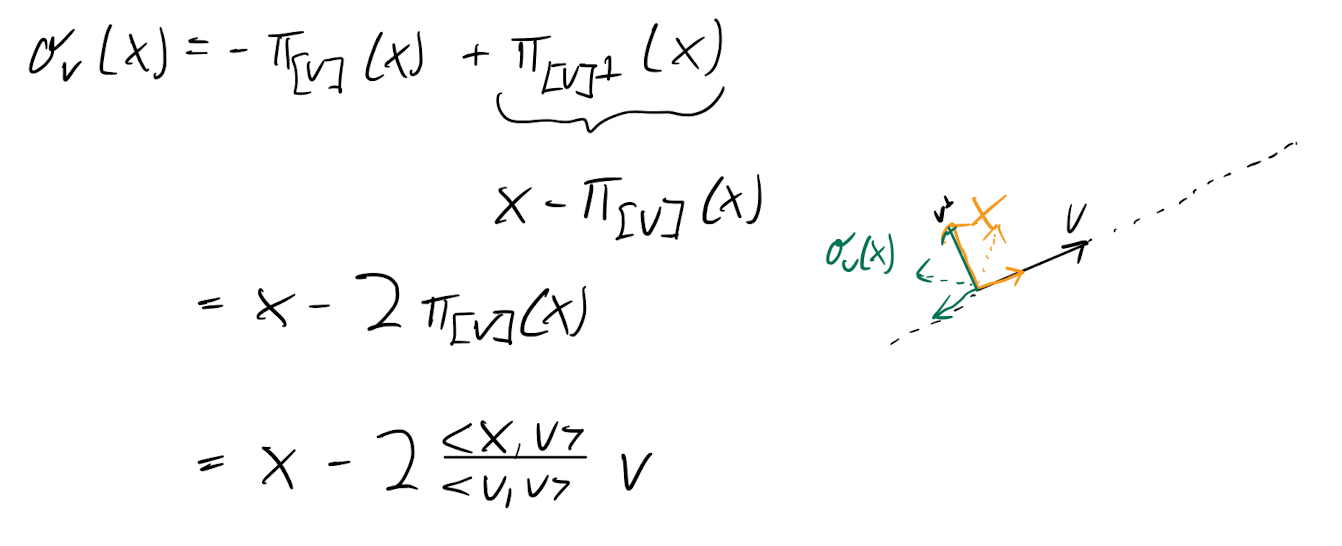 σ_v (x) = - π_[v] (x) + π_[v]⊥ (x)
x - π_[v] (x)
= x - 2 π_[v] (x)
= x - 2 <x, v> / <v, v> v
v⊥ x v
σ_v(x)